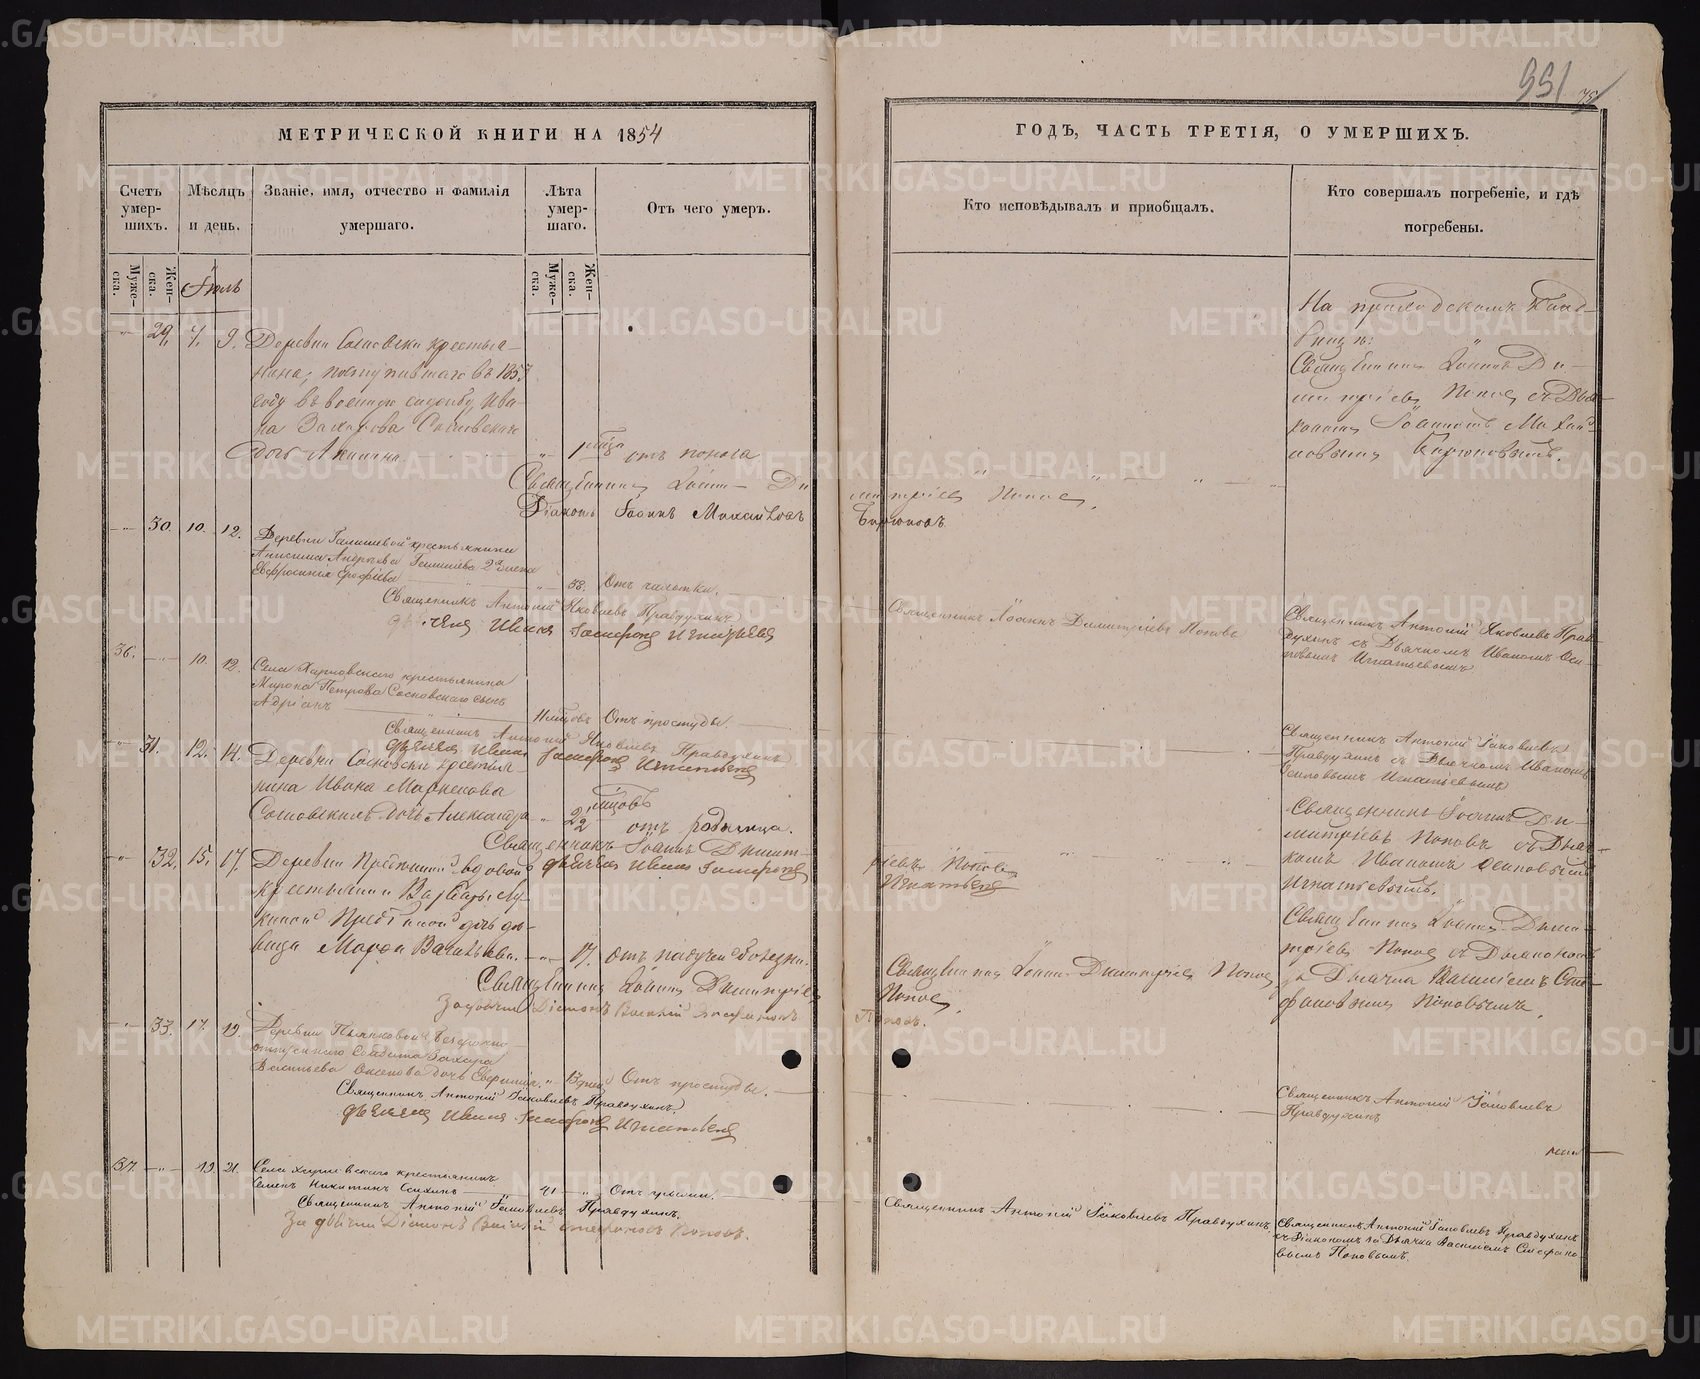 351
МЕТРИЧЕСКОЙ КНИГИ НА 1854
ГОДЪ, ЧАСТЬ ТРЕТІЯ, О УМЕРШИХЪ.
Счетъ умер-шихъ.
Муже-ска.
Жен-ска.
Мѣсяцъ и день.
Званіе, имя, отчество и фамилія умершаго.
Лѣта умер-шаго.
Муже-ска.
Жен-ска.
Отъ чего умеръ.
Кто исповѣдывалъ и приобщалъ.
Кто совершалъ погребеніе, и гдѣ погребены.
Іюль
29. 7. 9. Деревни Сосновски крестья-
нина, поступившаго въ 1853
году въ военную службу, Ива-
на Захарова Сосновскихъ
дочь Акилина. 1 отъ поноса
Священникъ Іоаннъ Ди
митріевъ Поповъ.
Діаконъ Іоаннъ Михайловъ
Бирюковъ.
На приходскомъ клад-
бищѣ:
Священникъ Іоаннъ Ди-
митріевъ Поповъ съ Діа-
кономъ Іоанномъ Михай-
ловымъ Бирюковымъ.
30. 10. 12. Деревни крестьянина
Анисима Андреева жена
Евфросинія Ерофіева 58. Отъ чахотки.
Священникъ Антоній Яковлевъ Правдухинъ
Дьячекъ Иванъ Игнатьевъ
Священникъ Іоаннъ Димитріевъ Поповъ
Священникъ Антоній Яковлевъ Прав-
духинъ съ Дьячкомъ Иваномъ Оси-
повымъ Игнатьевымъ
36. 10. 12. Села Харловскаго крестьянина
Мирона Петрова Сосновскаго сынъ
Адріанъ Отъ простуды.
Священникъ Антоній Яковлевъ Правдухинъ
Дьячекъ Иванъ Игнатьевъ
Священникъ Антоній Іаковлевъ
Правдухинъ съ Дьячкомъ Иваномъ
Осиповымъ Игнатьевымъ
31. 12. 14. Деревни Сосновски крестья-
нина Ивана
Сосновскихъ дочь Александра отъ родимца.
Священникъ Іоаннъ Димит-
ріевъ Поповъ
Дьячекъ Иванъ
Игнатьевъ
Священникъ Іоаннъ Ди-
митріевъ Поповъ съ Дьяч-
комъ Иваномъ Осиповымъ
Игнатьевымъ.
32. 15. 17. Деревни вдовой
крестьянки Варвары Лу-
киной дочь дѣ-
вица Васильева. 17. отъ падучей болезни.
Священникъ Іоаннъ Димитріевъ
Поповъ.
За дьячка Діаконъ Василій Стефановъ
Поповъ.
Священникъ Іоаннъ Димитріевъ Поповъ
Священникъ Іоаннъ Дими-
тріевъ Поповъ съ Діакономъ
за Дьячка Василіемъ Сте-
фановымъ Поповымъ.
33. 17. 19. Деревни Пьянковой безсрочно-
отпускнаго солдата Захара
Васильева дочь Евфимія. Отъ простуды.
Священникъ Антоній Іаковлевъ Правдухинъ.
Дьячекъ Иванъ Игнатьевъ
Священникъ Антоній Іаковлевъ
Правдухинъ
37. 19. 21. Села Харловскаго крестьянинъ
Семенъ Никитинъ 41
Священникъ Антоній Іаковлевъ Правдухинъ.
За дьячка Діаконъ Василій Стефановъ Поповъ.
Священникъ Антоній Іаковлевъ Правдухинъ
Священникъ Антоній Іаковлевъ Правдухинъ
съ Діакономъ за Дьячка Василіемъ Стефано-
вымъ Поповымъ.
METRIKI.GASO-URAL.RU